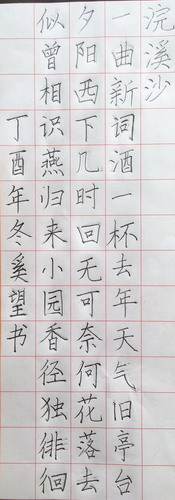 浣溪沙
一曲新词酒一杯去年天气旧亭台
夕阳西下几时回无可奈何花落去
似曾相识燕归来小园香径独徘徊
丁酉年冬奚望书